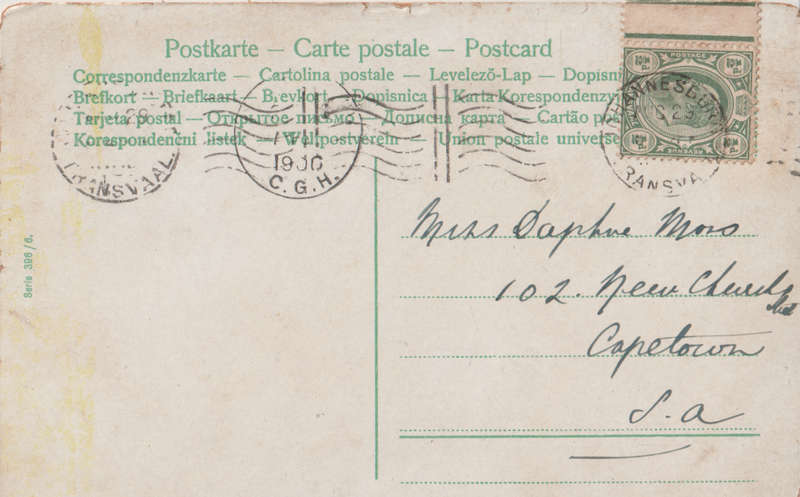 Postkarte — Carte postale — Postcard
Correspondenzkarte — Cartolina postale — Levelezõ-Lap — Dopisn
Brefkort — Briefkaart — Brevkort — Dopisnica — Karta Korespondenzy
Tarjeta postal — Открытое письмо — Дописна карта — Cartão po
Korespondenční lístek — Weltpostverein — Union postale universe
TRANSVAAL
1906
C.G.H.
POSTAGE
ANNESBUR
RANSVA
Serie 396/6.
Miss Daphne
102. New Church
Capetown
S.A